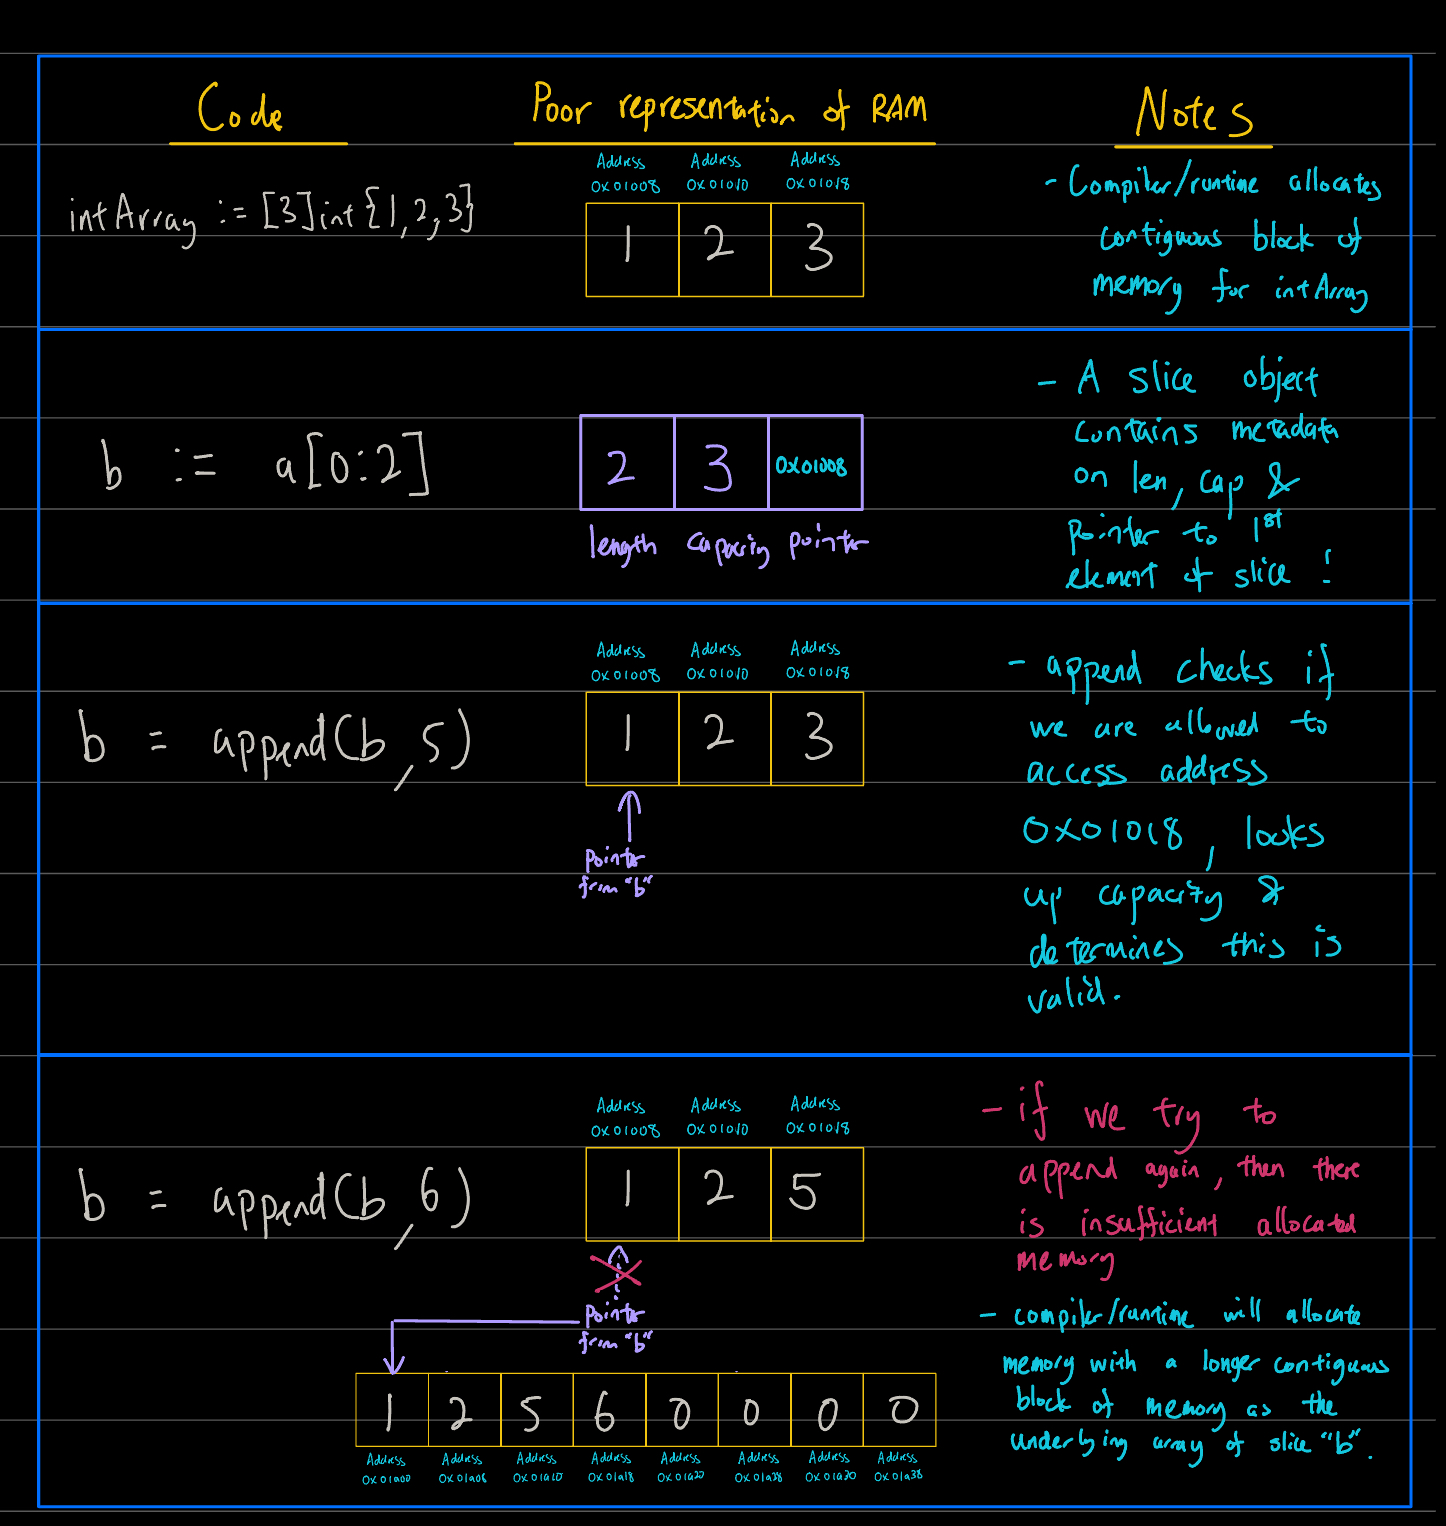 Code
Poor representation of RAM
Notes
intArray := [3]int{1,2,3}
Address Address Address
0x01008 0x01010 0x01018
1 2 3
- Compiler/runtime allocates
contiguous block of
memory for intArray
b := a[0:2]
2 3 0x01008
length capacity pointer
- A slice object
contains metadata
on len, cap &
pointer to 1st
element of slice !
b = append(b,5)
Address Address Address
0x01008 0x01010 0x01018
1 2 3
pointer
from "b"
- append checks if
we are allowed to
access address
0x01018, looks
up capacity &
determines this is
valid.
b = append(b,6)
Address Address Address
0x01008 0x01010 0x01018
1 2 5
pointer
from "b"
1 2 5 6 0 0 0 0
Address Address Address Address Address Address Address Address
0x01a00 0x01a08 0x01a10 0x01a18 0x01a20 0x01a28 0x01a30 0x01a38
- if we try to
append again, then there
is insufficient allocated
memory
- compiler/runtime will allocate
memory with a longer contiguous
block of memory as the
underlying array of slice "b".